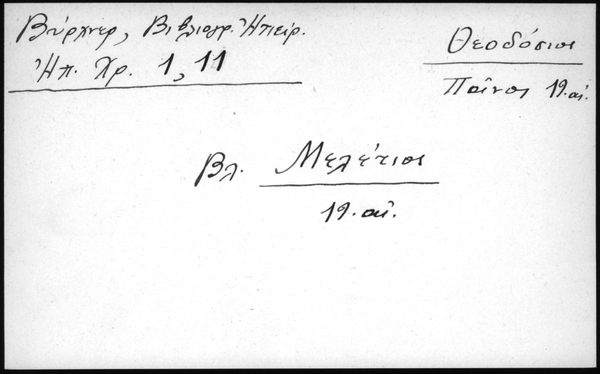 Βύρχνερ, Βιβλιογρ. Ἠπείρ.
Ἠπ. Χρ. 1, 11
Θεοδόσιος
Ποῖνος 19. αἰ.
Βλ. Μελέτιος
19. αἰ.